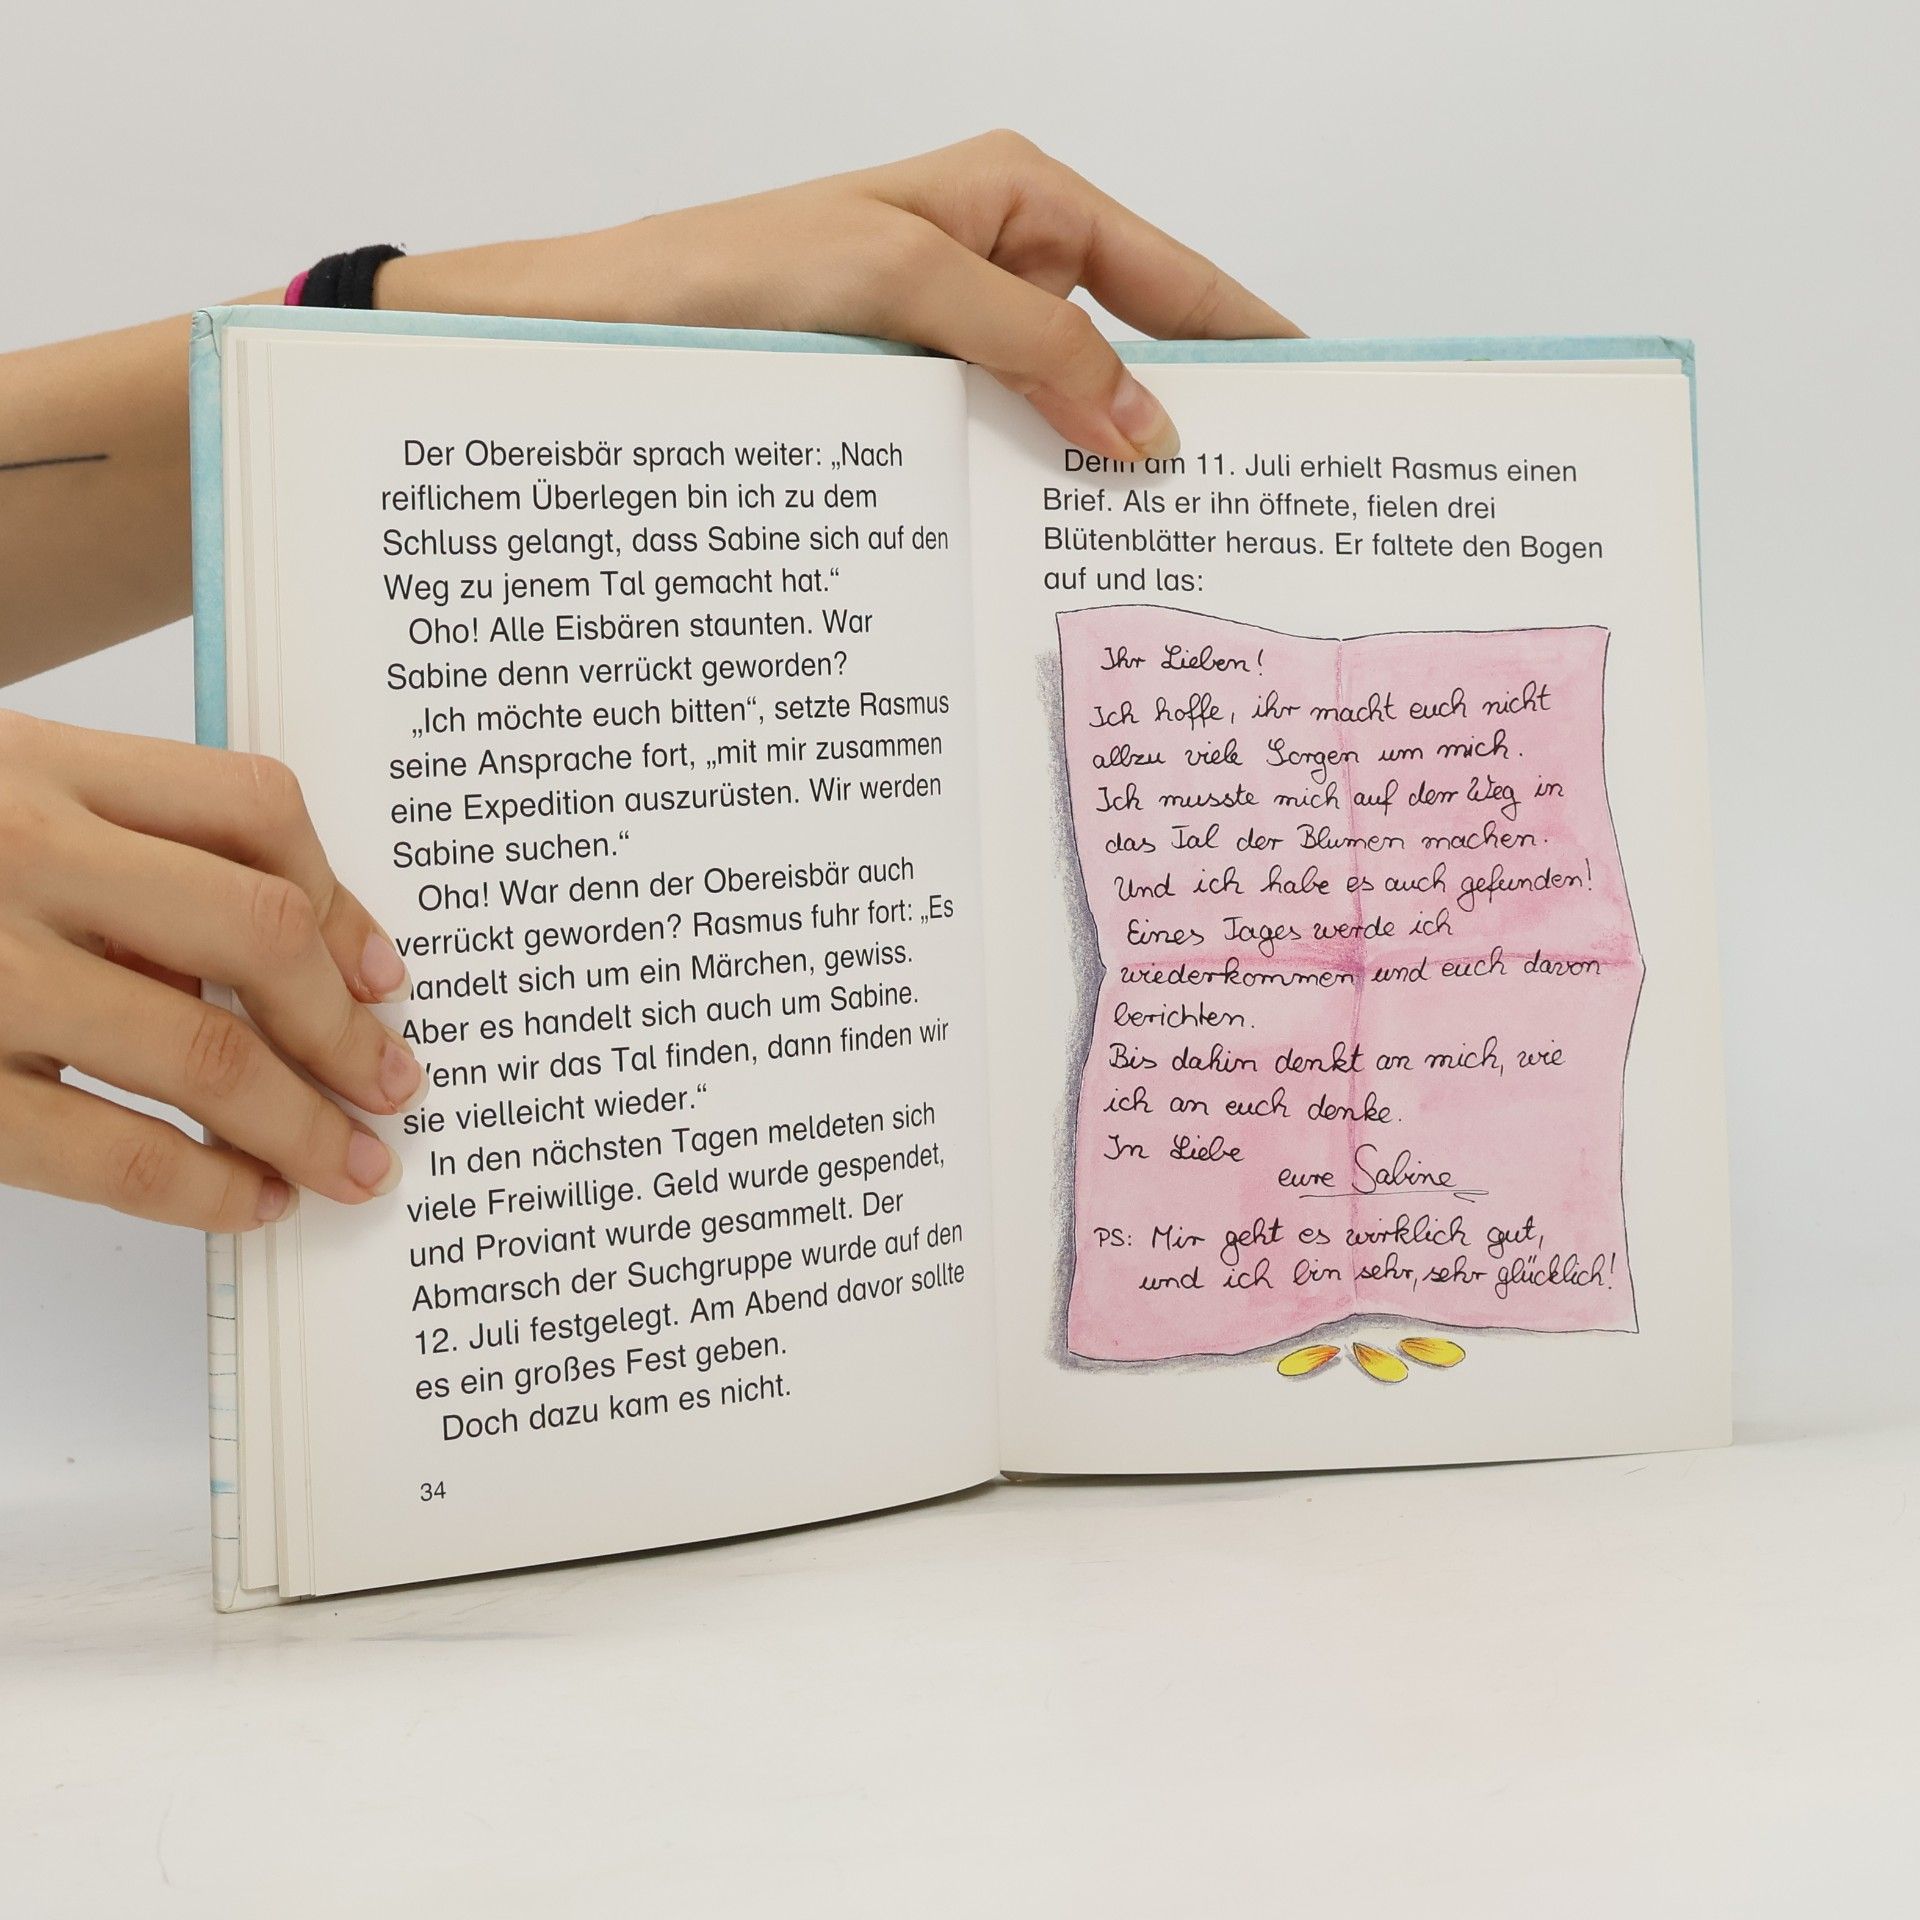 Der Obereisbär sprach weiter: „Nach
reiflichem Überlegen bin ich zu dem
Schluss gelangt, dass Sabine sich auf den
Weg zu jenem Tal gemacht hat.“
Oho! Alle Eisbären staunten. War
Sabine denn verrückt geworden?
„Ich möchte euch bitten“, setzte Rasmus
seine Ansprache fort, „mit mir zusammen
eine Expedition auszurüsten. Wir werden
Sabine suchen.“
Oha! War denn der Obereisbär auch
verrückt geworden? Rasmus fuhr fort: „Es
handelt sich um ein Märchen, gewiss.
Aber es handelt sich auch um Sabine.
Wenn wir das Tal finden, dann finden wir
sie vielleicht wieder.“
In den nächsten Tagen meldeten sich
viele Freiwillige. Geld wurde gespendet,
und Proviant wurde gesammelt. Der
Abmarsch der Suchgruppe wurde auf den
12. Juli festgelegt. Am Abend davor sollte
es ein großes Fest geben.
Doch dazu kam es nicht.
34
Denn am 11. Juli erhielt Rasmus einen
Brief. Als er ihn öffnete, fielen drei
Blütenblätter heraus. Er faltete den Bogen
auf und las:
Ihr Lieben!
Ich hoffe, ihr macht euch nicht
allzu viele Sorgen um mich.
Ich musste mich auf den Weg in
das Tal der Blumen machen.
Und ich habe es auch gefunden!
Eines Tages werde ich
wiederkommen und euch davon
berichten.
Bis dahin denkt an mich, wie
ich an euch denke.
In Liebe
eure Sabine
PS: Mir geht es wirklich gut,
und ich bin sehr, sehr glücklich!